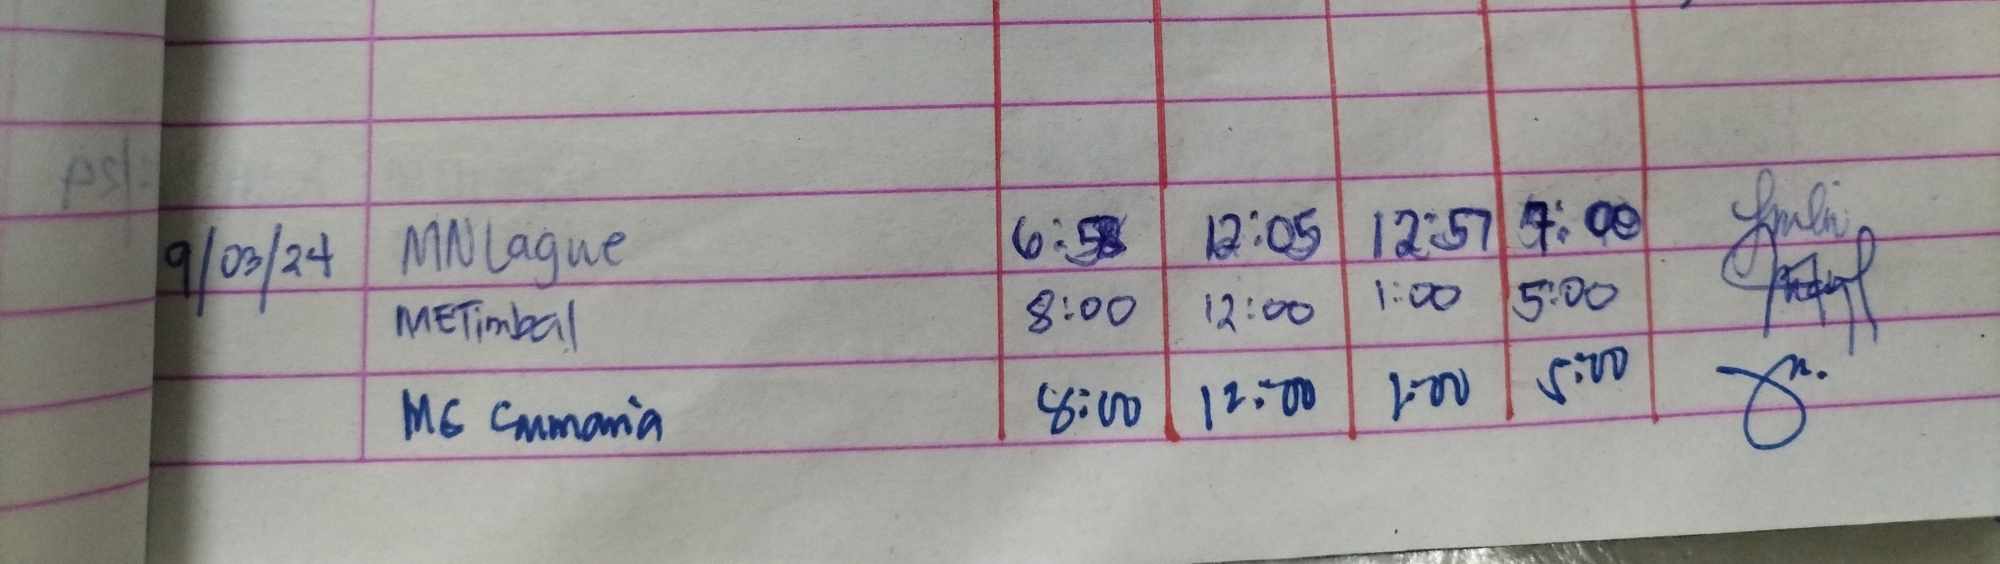 9/03/24 MNLague 6:58 12:05 12:57 7:00
METimbal 8:00 12:00 1:00 5:00
MG 8:00 12:00 1:00 5:00